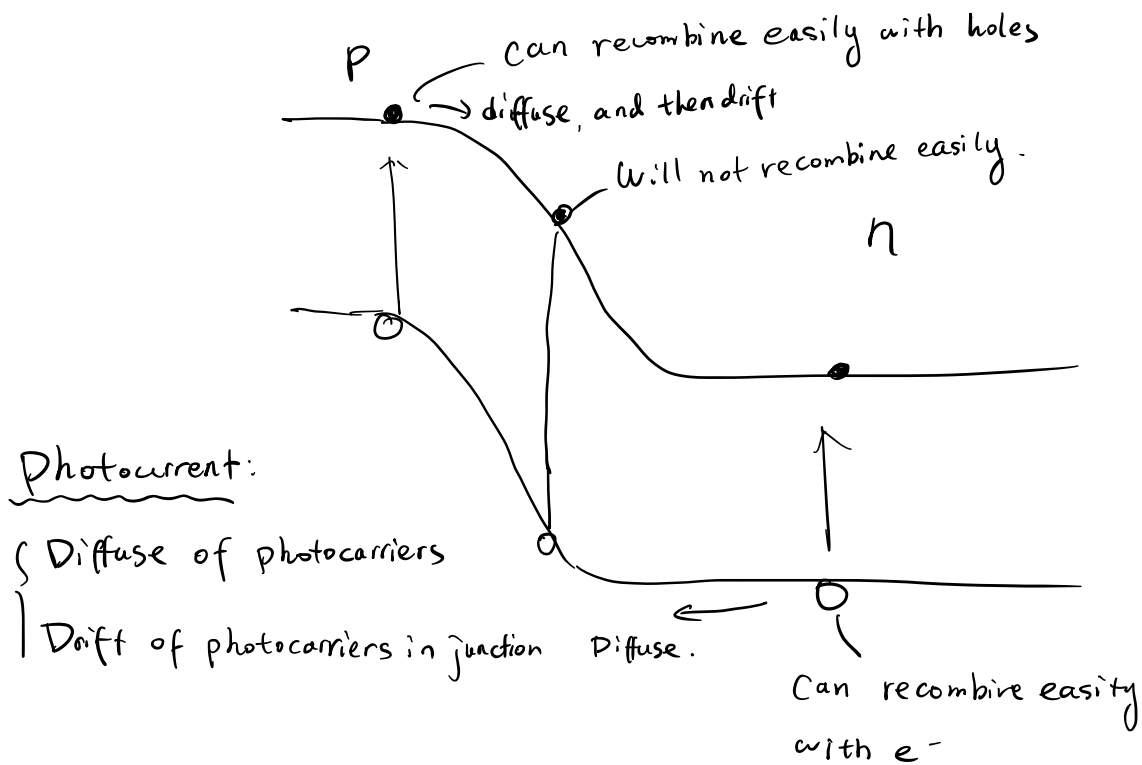 P
Can recombine easily with holes
→ diffuse, and then drift
Will not recombine easily.
n
Photocurrent:
Diffuse of photocarriers
Drift of photocarriers in junction
Diffuse.
Can recombire easity
with e⁻